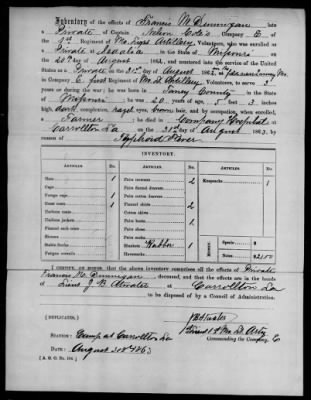 Inventory of the effects of Francis M. Dunnigan late
a Private of Captain Nelson Cole's Company E of
the 1st Regiment of Mo Light Artillery Volunteers, who was enrolled
as a Private at in the State of Missouri on
the 20th day of August 1861, and mustered into the service of the United
States as a Private on the 31st day of August 1861, at
Co. E first Regiment of Mo Lt Artillery Volunteers, to serve 3
years or during the war; he was born in Taney County in the State
of Missouri; he was 20 years of age, 5 feet 3 inches
high, dark complexion, hazel eyes, brown hair, and by occupation, when enrolled,
a Farmer; he died in Company Hospital at
Carrollton La on the 31st day of August 1863, by
reason of Typhoid Fever
INVENTORY.
ARTICLES. No. ARTICLES. No. ARTICLES. No.
Hats 1 Pairs trowsers 2 Knapsacks 1
Caps Pairs flannel drawers
Forage caps Pairs cotton drawers
Great coats 1 Flannel shirts 2
Uniform coats Cotton shirts
Uniform jackets Pairs boots
Flannel sack coats Pairs shoes
Shirts Pairs socks
Stable frocks Blankets Rubber 1 Specie $
Fatigue overalls Haversacks Notes
I CERTIFY, ON HONOR, that the above inventory comprises all the effects of Private
Francis M. Dunnigan deceased, and that the effects are in the hands
of Lieut J. B. Atwater at Carrollton La
to be disposed by a Council of Administration.
[DUPLICATES.] J B Atwater
Lieut 1st Mo Lt Arty
STATION: Camp at Carrollton La Commanding the Company. E
DATE: August 1863
[A. G. O. No. ]